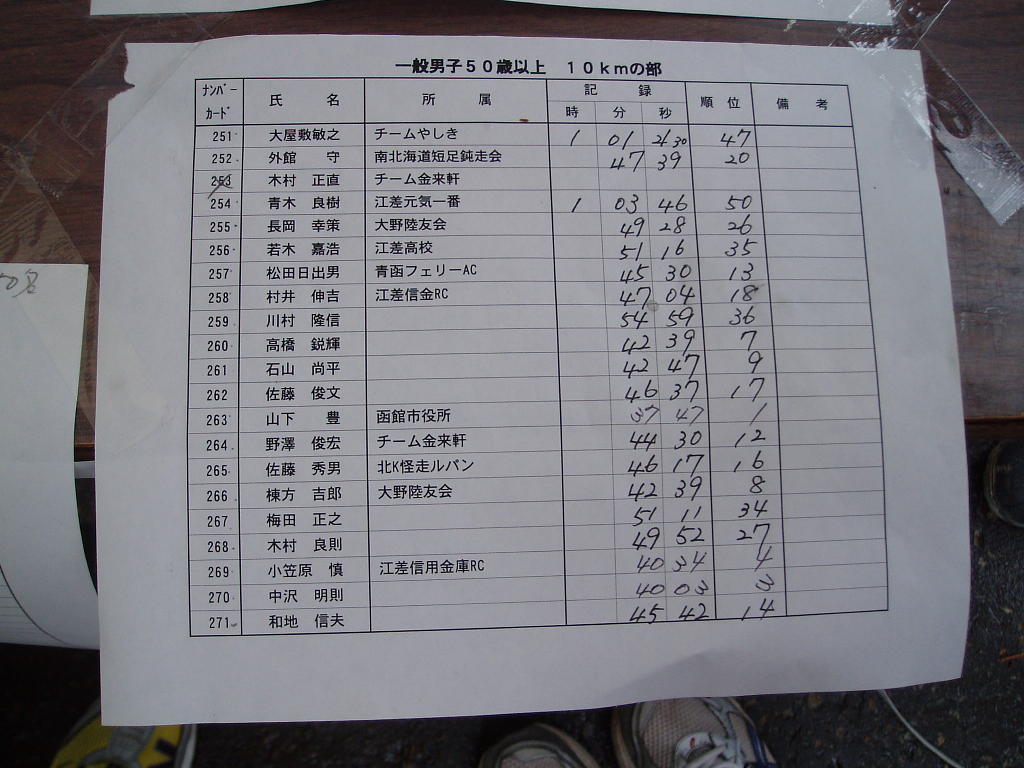 一般男子50歳以上 10kmの部
ナンバーカード 氏名 所属 記録 順位 備考
時 分 秒
251 大屋敷敏之 チームやしき 1 01 30 47
252 外館 守 南北海道短足鈍走会 47 39 20
253 木村 正直 チーム金来軒
254 青木 良樹 江差元気一番 1 03 46 50
255 長岡 幸策 大野陸友会 49 28 26
256 若木 嘉浩 江差高校 51 16 35
257 松田日出男 青函フェリーAC 45 30 13
258 村井 伸吉 江差信金RC 47 04 18
259 川村 隆信 54 59 36
260 高橋 鋭輝 42 39 7
261 石山 尚平 42 47 9
262 佐藤 俊文 46 37 17
263 山下 豊 函館市役所 37 47 1
264 野澤 俊宏 チーム金来軒 44 30 12
265 佐藤 秀男 北K怪走ルパン 46 17 16
266 棟方 吉郎 大野陸友会 42 39 8
267 梅田 正之 51 11 34
268 木村 良則 49 52 27
269 小笠原 慎 江差信用金庫RC 40 34 4
270 中沢 明則 40 03 3
271 和地 信夫 45 42 14